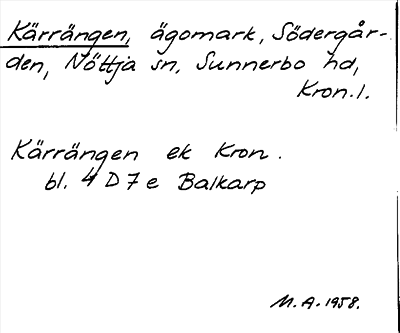 Kärrängen, ägomark, Södergår-
den, Nöttja sn, Sunnerbo hd,
Kron. l.
Kärrängen ek Kron.
bl. 4 D 7 e Balkarp
M.A. 1958.